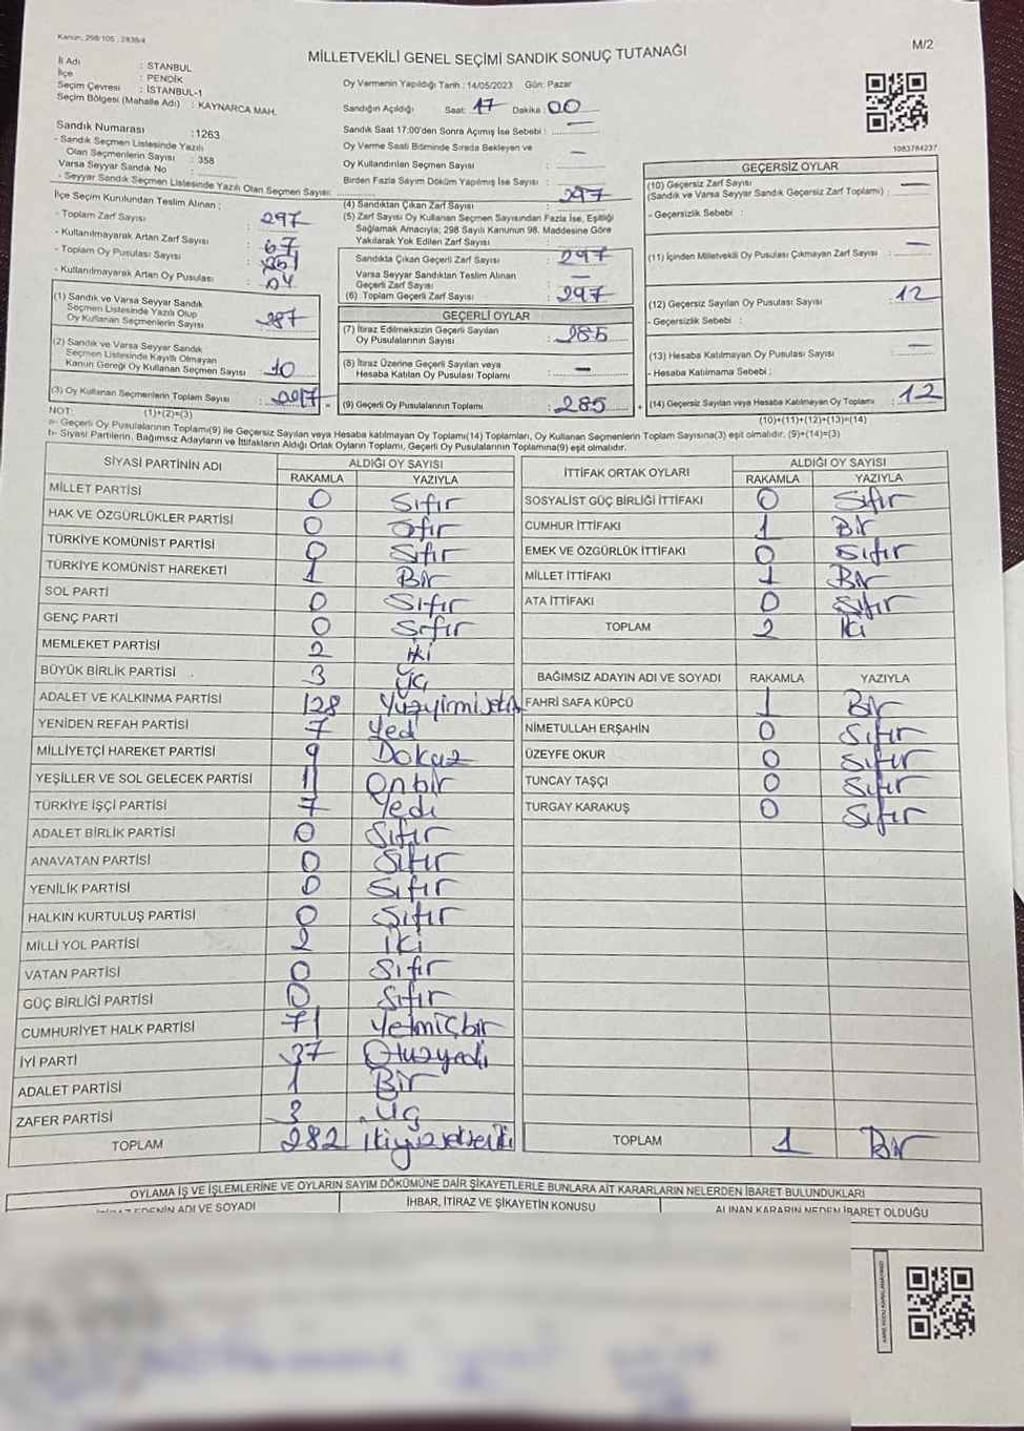 Kanun: 298/105
M/2
MİLLETVEKİLİ GENEL SEÇİMİ SANDIK SONUÇ TUTANAĞI
İli Adı : STANBUL
İlçe : PENDİK
Seçim Çevresi : İSTANBUL-1
Seçim Bölgesi (Mahalle Adı) : KAYNARCA MAH.
Sandık Numarası : 1263
- Sandık Seçmen Listesinde Yazılı
Olan Seçmenlerin Sayısı : 358
Varsa Seyyar Sandık No
- Seyyar Sandık Seçmen Listesinde Yazılı Olan Seçmen Sayısı:
İlçe Seçim Kurulundan Teslim Alınan ;
- Toplam Zarf Sayısı : 297
- Kullanılmayarak Artan Zarf Sayısı : 67
- Toplam Oy Pusulası Sayısı :
- Kullanılmayarak Artan Oy Pusulası :
(1) Sandık ve Varsa Seyyar Sandık
Seçmen Listesinde Yazılı Olup
Oy Kullanan Seçmenlerin Sayısı : 287
(2) Sandık ve Varsa Seyyar Sandık
Seçmen Listesinde Kayıtlı Olmayan
Kanun Gereği Oy Kullanan Seçmen Sayısı : 10
(3) Oy Kullanan Seçmenlerin Toplam Sayısı :
Oy Vermenin Yapıldığı Tarih : 14/05/2023 Gün: Pazar
Sandığın Açıldığı Saat: 17 Dakika : 00
Sandık Saat 17:00'den Sonra Açımış İse Sebebi : —
Oy Verme Saati Bitiminde Sırada Bekleyen ve
Oy Kullandırılan Seçmen Sayısı : —
Birden Fazla Sayım Döküm Yapılmış İse Sayısı :
(4) Sandıktan Çıkan Zarf Sayısı : 297
(5) Zarf Sayısı Oy Kullanan Seçmen Sayısından Fazla İse, Eşitliği
Sağlamak Amacıyla; 298 Sayılı Kanunun 98. Maddesine Göre
Yakılarak Yok Edilen Zarf Sayısı :
Sandıkta Çıkan Geçerli Zarf Sayısı : 297
Varsa Seyyar Sandıktan Teslim Alınan
Geçerli Zarf Sayısı : —
(6) Toplam Geçerli Zarf Sayısı : 297
GEÇERLİ OYLAR
(7) İtiraz Edilmeksizin Geçerli Sayılan
Oy Pusulalarının Sayısı : 285
(8) İtiraz Üzerine Geçerli Sayılan veya
Hesaba Katılan Oy Pusulası Toplamı : —
(9) Geçerli Oy Pusulalarının Toplamı : 285
1083784237
GEÇERSİZ OYLAR
(10) Geçersiz Zarf Sayısı
(Sandık ve Varsa Seyyar Sandık Geçersiz Zarf Toplamı) : —
- Geçersizlik Sebebi :
(11) İçinden Milletvekili Oy Pusulası Çıkmayan Zarf Sayısı : —
(12) Geçersiz Sayılan Oy Pusulası Sayısı : 12
- Geçersizlik Sebebi :
(13) Hesaba Katılmayan Oy Pusulası Sayısı : —
- Hesaba Katılmama Sebebi :
(14) Geçersiz Sayılan veya Hesaba Katılmayan Oy Toplamı : 12
NOT: (1)+(2)=(3)
(10)+(11)+(12)+(13)=(14)
a- Geçerli Oy Pusulalarının Toplamı(9) ile Geçersiz Sayılan veya Hesaba katılmayan Oy Toplamı(14) Toplamları, Oy Kullanan Seçmenlerin Toplam Sayısına(3) eşit olmalıdır. (9)+(14)=(3)
b- Siyasi Partilerin, Bağımsız Adayların ve İttifakların Aldığı Ortak Oyların Toplamı, Geçerli Oy Pusulalarının Toplamına(9) eşit olmalıdır.
SİYASİ PARTİNİN ADI ALDIĞI OY SAYISI
RAKAMLA YAZIYLA
MİLLET PARTİSİ 0 Sıfır
HAK VE ÖZGÜRLÜKLER PARTİSİ 0 Sıfır
TÜRKİYE KOMÜNİST PARTİSİ 0 Sıfır
TÜRKİYE KOMÜNİST HAREKETİ 1 Bir
SOL PARTİ 0 Sıfır
GENÇ PARTİ 0 Sıfır
MEMLEKET PARTİSİ 2 iki
BÜYÜK BİRLİK PARTİSİ 3 Üç
ADALET VE KALKINMA PARTİSİ 128 Yüzyirmisekiz
YENİDEN REFAH PARTİSİ 7 Yedi
MİLLİYETÇİ HAREKET PARTİSİ 9 Dokuz
YEŞİLLER VE SOL GELECEK PARTİSİ 11 Onbir
TÜRKİYE İŞÇİ PARTİSİ 7 Yedi
ADALET BİRLİK PARTİSİ 0 Sıfır
ANAVATAN PARTİSİ 0 Sıfır
YENİLİK PARTİSİ 0 Sıfır
HALKIN KURTULUŞ PARTİSİ 0 Sıfır
MİLLİ YOL PARTİSİ 2 İki
VATAN PARTİSİ 0 Sıfır
GÜÇ BİRLİĞİ PARTİSİ 0 Sıfır
CUMHURİYET HALK PARTİSİ 71 Yetmişbir
İYİ PARTİ 37 Otuzyedi
ADALET PARTİSİ 1 Bir
ZAFER PARTİSİ 3 Üç
TOPLAM 282 ikiyüzsekseniki
İTTİFAK ORTAK OYLARI ALDIĞI OY SAYISI
RAKAMLA YAZIYLA
SOSYALİST GÜÇ BİRLİĞİ İTTİFAKI 0 Sıfır
CUMHUR İTTİFAKI 1 Bir
EMEK VE ÖZGÜRLÜK İTTİFAKI 0 Sıfır
MİLLET İTTİFAKI 1 Bir
ATA İTTİFAKI 0 Sıfır
TOPLAM 2 İki
BAĞIMSIZ ADAYIN ADI VE SOYADI RAKAMLA YAZIYLA
FAHRİ SAFA KÜPCÜ 1 Bir
NİMETULLAH ERŞAHİN 0 Sıfır
ÜZEYFE OKUR 0 Sıfır
TUNCAY TAŞÇI 0 Sıfır
TURGAY KARAKUŞ 0 Sıfır
TOPLAM 1 Bir
OYLAMA İŞ VE İŞLEMLERİNE VE OYLARIN SAYIM DÖKÜMÜNE DAİR ŞİKAYETLERLE BUNLARA AİT KARARLARIN NELERDEN İBARET BULUNDUKLARI
İTİRAZ EDENİN ADI VE SOYADI İHBAR, İTİRAZ VE ŞİKAYETİN KONUSU ALINAN KARARIN NEDEN İBARET OLDUĞU